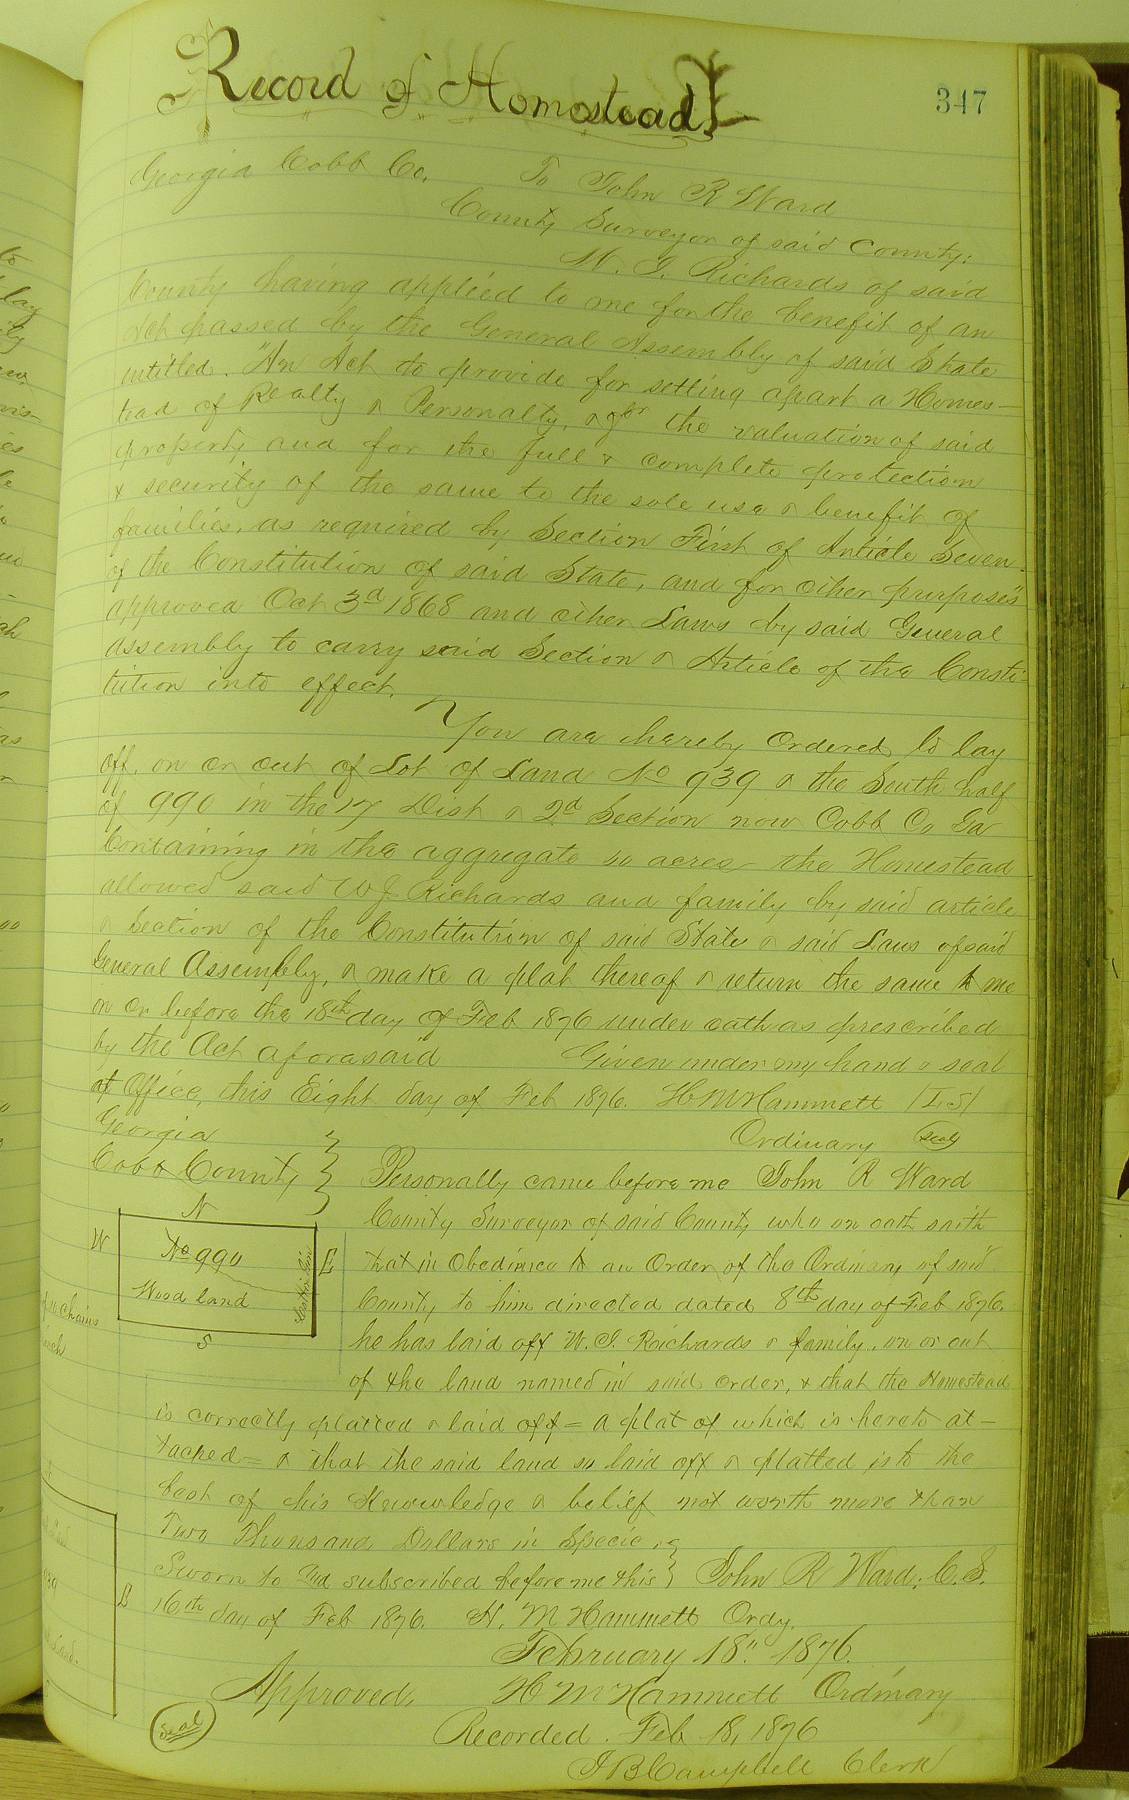 Record of Homestead
347
Georgia Cobb Co. To John R Ward
County Surveyor of said County:
W. J. Richards of said
County having applied to me for the benefit of an
Act passed by the General Assembly of said State
intitled. "An Act to provide for setting apart a Homes-
tead of Realty & Personalty, & for the valuation of said
property and for the full & complete protection
& security of the same to the sole use & benefit of
families, as required by Section First of Article Seven
of the Constitution of said State, and for other purposes"
approved Oct 3d 1868 and other Laws by said General
Assembly to carry said Section & Article of the Consti-
tution into effect.
You are hereby Ordered to lay
off, on or out of Lot of Land No 939 & the South half
of 990 in the 17 Dist & 2d Section now Cobb Co Ga
Containing in the aggregate acres the Homestead
allowed said W J Richards and family by said article
& Section of the Constitution of said State & said Laws of said
General Assembly, & make a plat thereof & return the same to me
on or before the 18th day of Feb 1876 under oath as prescribed
by the Act aforesaid Given under my hand & seal
at Office, this Eight day of Feb 1876. H M Hammett /L,S/
Georgia Ordinary Seal
Cobb County } Personally came before me John R Ward
N County Surveyor of said County who on oath saith
W No 990 E that in Obedience to an Order of the Ordinary of said
Wood land County to him directed dated 8th day of Feb 1876.
S he has laid off W. J. Richards & family, on or out
of the land named in said order, & that the Homestead
is correctly platted & laid off = a plat of which is hereto at-
tached = & that the said land so laid off & platted is to the
best of his Knowledge & belief not worth more than
Two Thousand Dollars in Specie.
Sworn to and subscribed before me this } John R Ward, C.S.
16th day of Feb 1876. H. M Hammett Ordy.
February 18" 1876.
Approved, H M Hammett Ordinary
Seal
Recorded. Feb 18, 1876
J B Campbell Clerk